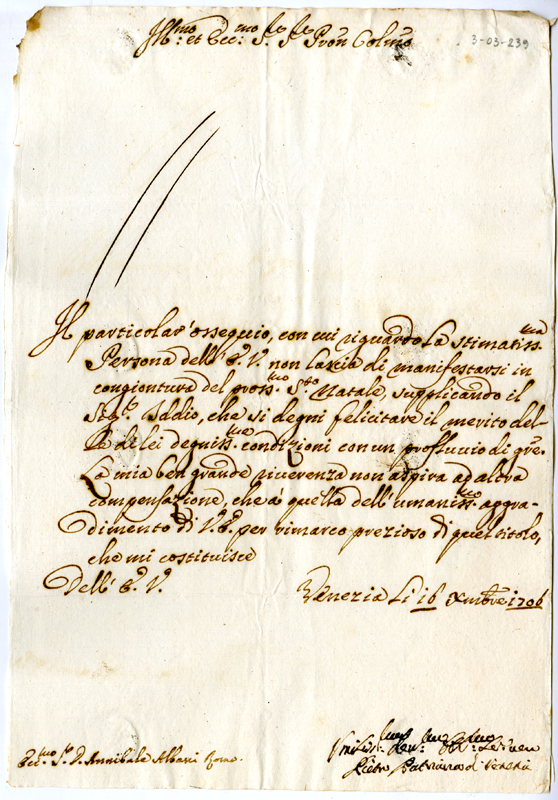 Ill:mo et Ecc:mo Sr. Sr. Pron Colmo
3-03-239
Il particolar' ossequio, con cui riguardo la stimatiss:ma
Persona dell' E. V. non lascia di manifestarsi in
congiontura del pross:mo Sto Natale, supplicando il
Sigr. Iddio, che si degni felicitare il merito del-
le di lei degniss:me condizioni con un profluvio di gre.
La mia ben grande riverenza non aspira ad altra
compensazione, che a' quella dell' umaniss:mo aggra-
dimento di V. E. per rimarco prezioso di quel titolo,
che mi costituisce
Dell' E. V.
Venezia li 16 Xmbre 1706
Ecc:mo Sr. D. Annibale Albani Roma.
Pietro Patriarca di Venezia